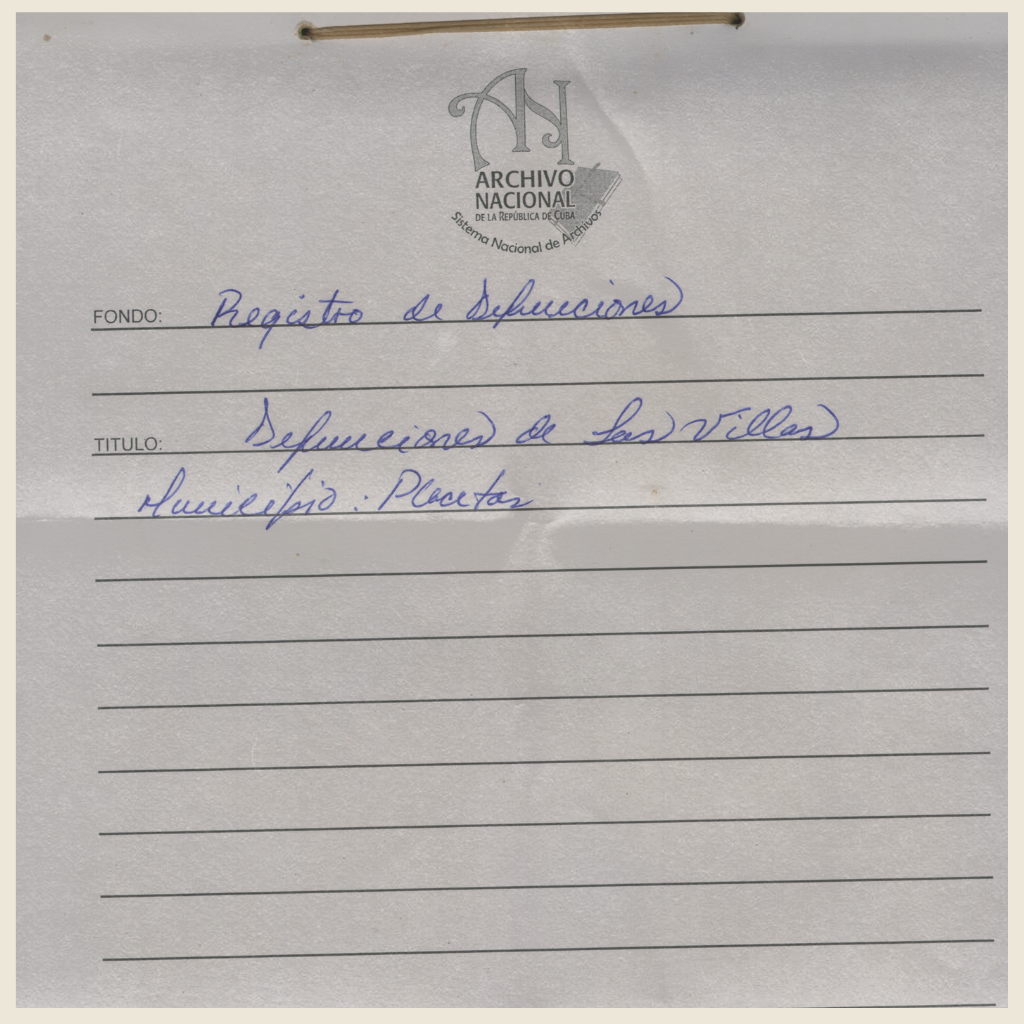 AN
ARCHIVO
NACIONAL
DE LA REPÚBLICA DE CUBA
Sistema Nacional de Archivos
FONDO: Registro de Defunciones
TITULO: Defunciones de Las Villas
Municipio: Placetas